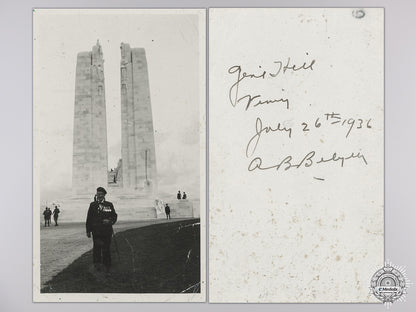 Gen'l Hill
Vimy
July 26th 1936
A B Belyea
eMedals